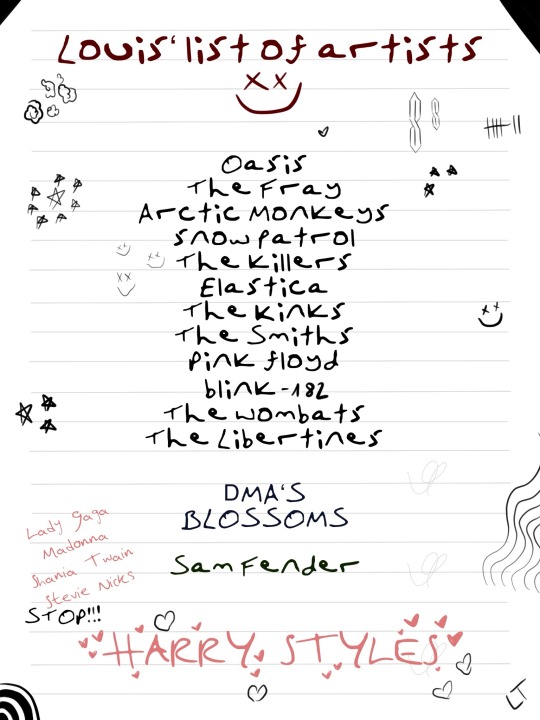 Louis' list of artists
Oasis
The Fray
Arctic Monkeys
snow patrol
The Killers
Elastica
The Kinks
The Smiths
Pink floyd
blink-182
The wombats
The Libertines
DMA'S
BLOSSOMS
Sam Fender
Lady Gaga
Madonna
Shania Twain
Stevie Nicks
STOP!!!
HARRY STYLES
LT